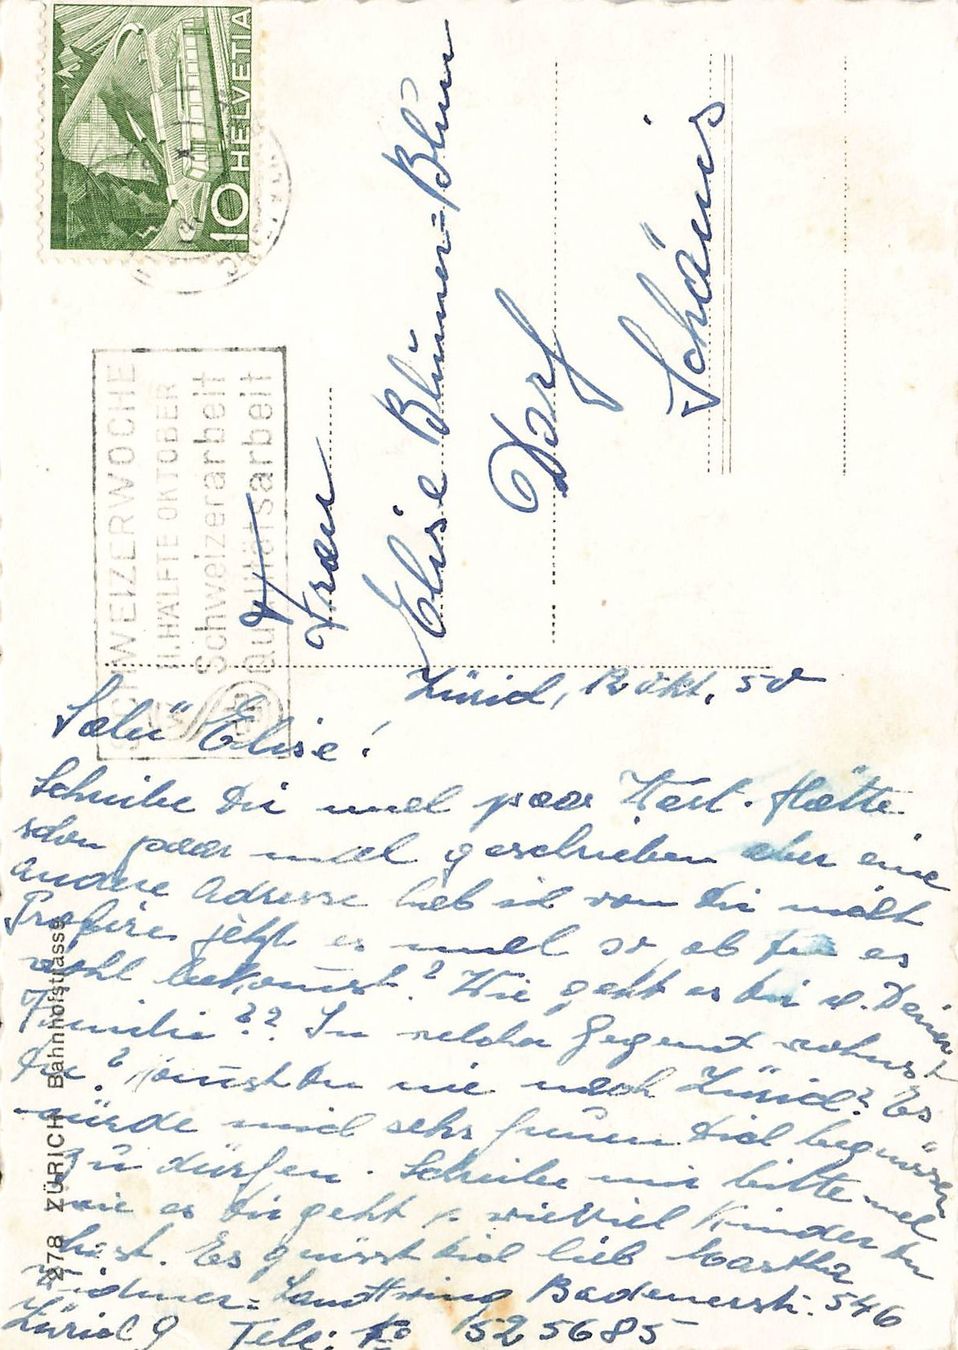 HELVETIA
10
SCHWEIZERWOCHE
II. HÄLFTE OKTOBER
Schweizerarbeit
Qualitätsarbeit
Frau
Elise Blumer-Blum
Dorf
Schänis
278 ZÜRICH Bahnhofstrasse
Zürich, 12 Okt. 50
Salü Elise!
Schreibe Dir mal paar Wort. Hätte
schon paar mal geschrieben aber eine
andere Adresse hab ich von Dir nicht
Probire jetzt es mal so, ob Du es
wohl bekomst? Wie geht es Dir u. Deiner
Familie?? In welcher Gegend wohnst
Du? komst Du nie nach Zürich? Es
würde mich sehr freuen Dich begrüssen
zu dürfen. Schreibe mir bitte mal
wie es Dir geht u. wieviel Kinder Du
hast. Es grüsst Dich lieb Martha
Widmer= Badenerstr. 546
Zürich 9 Tele: 525685